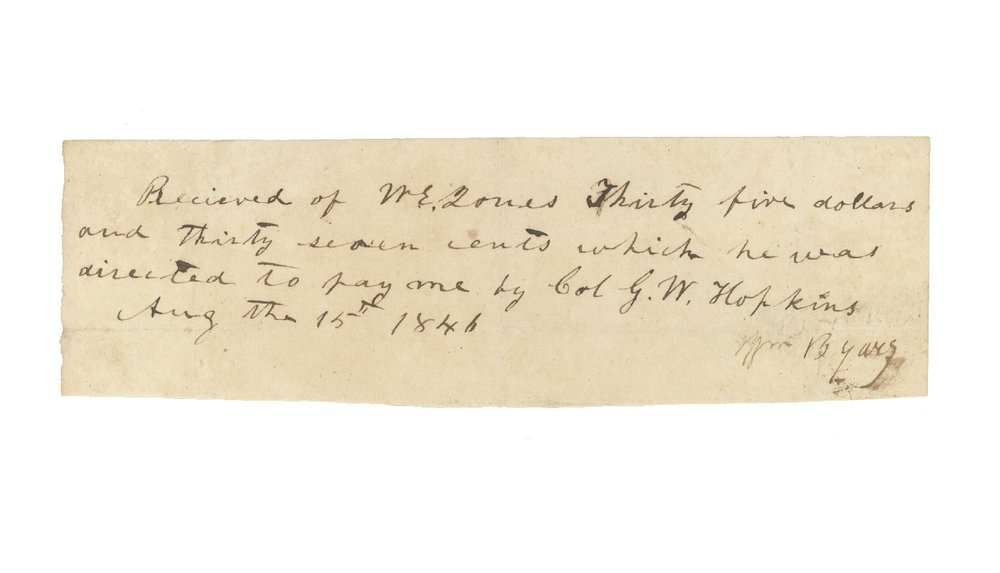 Recieved of W.E. Jones Thirty five dollars
and thirty seven cents which he was
directed to pay me by Col G.W. Hopkins
Aug the 15th 1846
Wm Byars